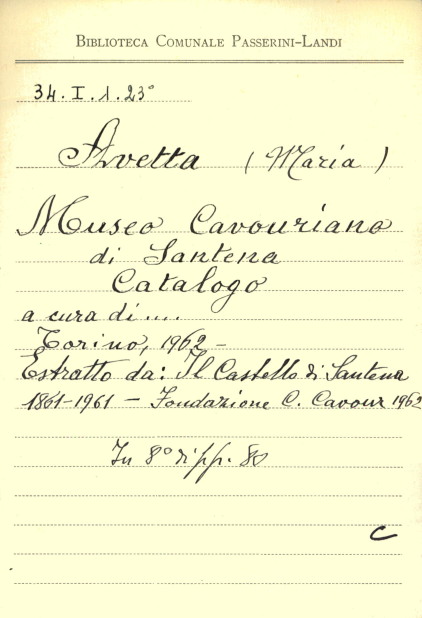 BIBLIOTECA COMUNALE PASSERINI-LANDI
34. I. 1. 23°
Avetta (Maria)
Museo Cavouriano
di Santena
Catalogo
a cura di ....
Torino, 1962 -
Estratto da: Il Castello di Santena
1861-1961 - Fondazione C. Cavour 1962
In 8° di pp. 80
C